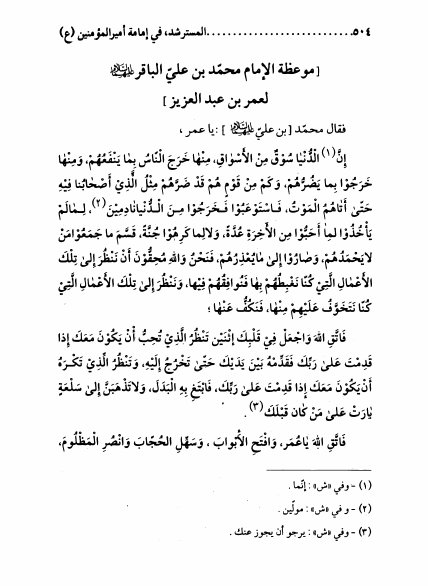 ٥٠٤ ............................ المسترشد، في إمامة أميرالمؤمنين (ع)
[موعظة الإمام محمّد بن عليّ الباقر عليهالسلام
لعمر بن عبد العزيز]
فقال محمّد [بن عليّ عليهالسلام] : يا عمر ،
إِنَّ (١) الدُّنْيٰا سُوْقٌ مِنَ الأَسْوٰاقِ، مِنْهٰا خَرَجَ النّٰاسُ بِمٰا يَنْفَعُهُمْ، وَمِنْهٰا
خَرَجُوا بِما يَضُرُّهُمْ، وَكَمْ مِنْ قَوْمٍ هُمْ قَدْ ضَرَّهُمْ مِثْلُ الَّذِيْ أَصْحٰابُنٰا فِيْهِ
حَتّىٰ أَتاهُمُ الْمَوْتُ، فَاسْتَوْعَبُوا فَخَرَجُوا مِنَ الدُّنْيٰا نٰادِمِيْنَ (٢)، لِمٰا لَمْ
يَأْخُذُوا لِمٰا أَحَبُّوا مِن الآخِرَةِ عُدَّةً، وَلا لِما كَرِهُوا جُنَّةً، قَسَّمَ ما جَمَعُوا مَنْ
لا يَحْمَدُهُمْ، وَصٰارُوا إِلىٰ مَا يُعْذِرُهُمْ، فَنَحْنُ وَاللهِ مُحِقُّوْنَ أَنْ نَنْظُرَ إِلىٰ تِلْكَ
الأَعْمٰالِ الَّتِيْ كُنّٰا نَغْبِطُهُمْ بِهٰا فَنُوافِقُهُمْ فِيْها، وَنَنْظُرَ إِلىٰ تِلْكَ الأَعْمٰالِ الَّتِيْ
كُنّٰا نَتَخَوَّفُ عَلَيْهِمْ مِنْهٰا، فَنَكُفُّ عَنْهٰا ؛
فَاتَّقِ اللهَ وَاجْعَلْ فِيْ قَلْبِكَ اثْنَيْنِ تَنْظُرُ الَّذِيْ تُحِبُّ أَنْ يَكُوْنَ مَعَكَ إِذا
قَدِمْتَ عَلىٰ رَبِّكَ فَقَدِّمْهُ بَيْنَ يَدَيْكَ حَتّىٰ تَخْرُجَ إِلَيْهِ، وَتَنْظُرُ الَّذِيْ تَكْرَهُ
أَنْ يَكُوْنَ مَعَكَ إِذا قَدِمْتَ عَلىٰ رَبِّكَ، فَابْتَغِ بِهِ الْبَدَلَ، وَلا تَذْهَبَنَّ إِلىٰ سَلْعَةٍ
بٰارَتْ عَلىٰ مَنْ كٰانَ قَبْلَكَ (٣) .
فَاتَّقِ اللهَ يٰا عُمَر، وَافْتَحِ الأَبْوابَ ، وَسَهِّلِ الْحُجّٰابَ وَانْصُرِ الْمَظْلُومَ،
(١) - وفي «ش» : إنّما .
(٢) - و في «ش» : مولّين .
(٣) - وفي «ش» : يرجو أن يجوز عنك .